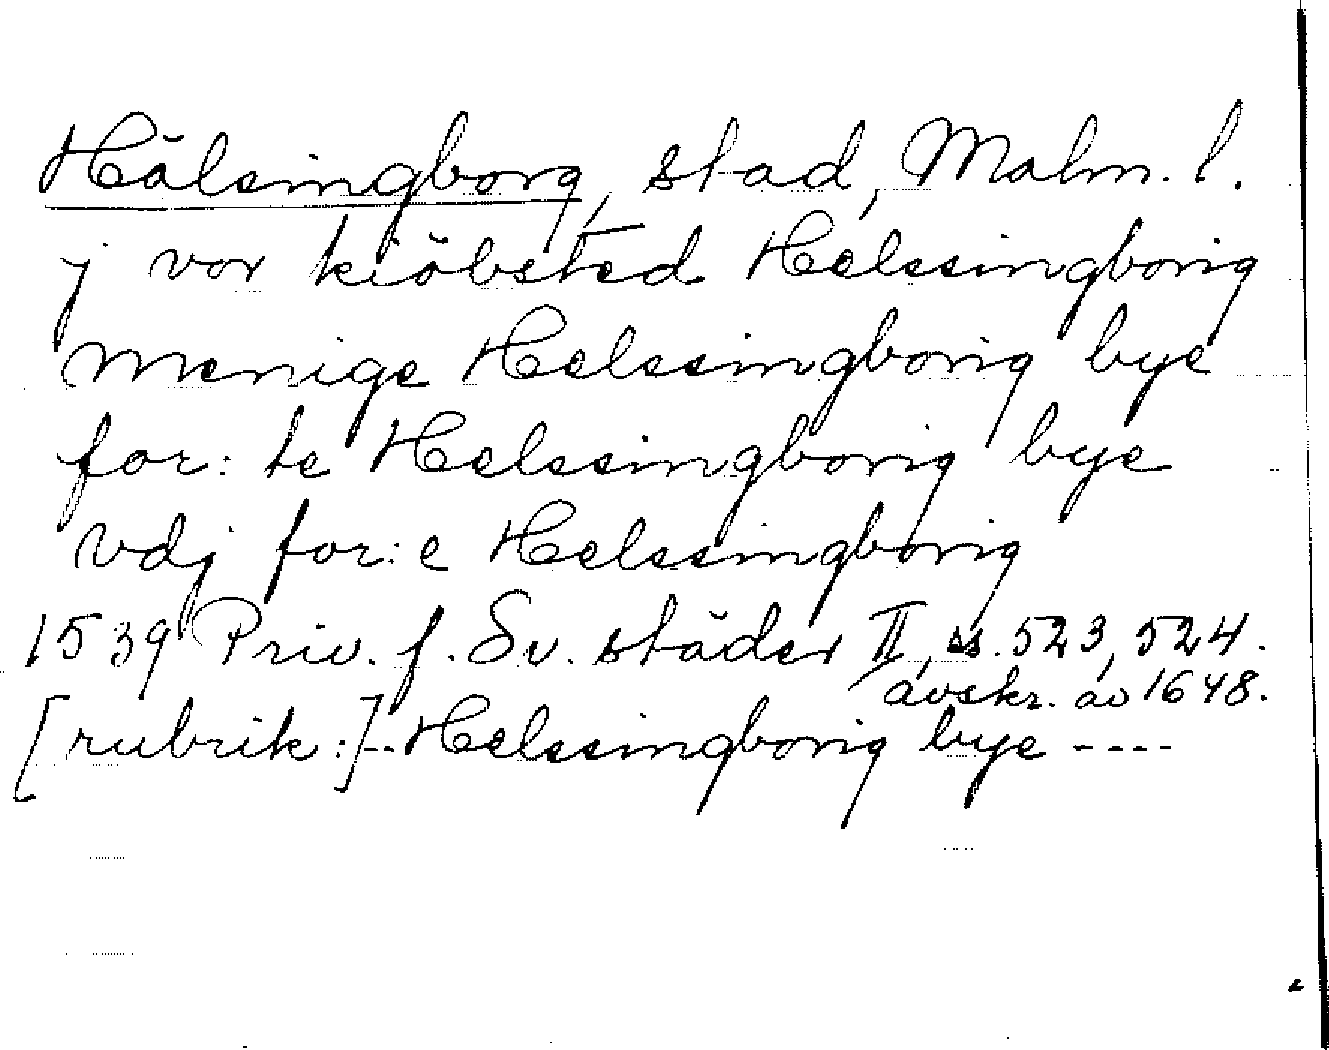 Hälsingborg, stad, Malm. l.
j vor kiöbsted Helssingborig
menige Helssingborig bye
for: te Helssingborig bye
vdj for: e Helssingborig
1539 Priv. f. Sv. städer II, ss. 523, 524.
avskr. av 1648.
[rubrik:] -- Helssingborig bye ----